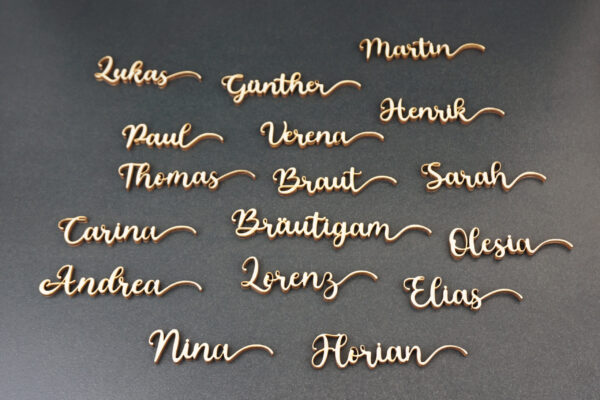 Martin
Lukas
Günther
Henrik
Paul
Verena
Thomas
Braut
Sarah
Carina
Bräutigam
Olesia
Andrea
Lorenz
Elias
Nina
Florian